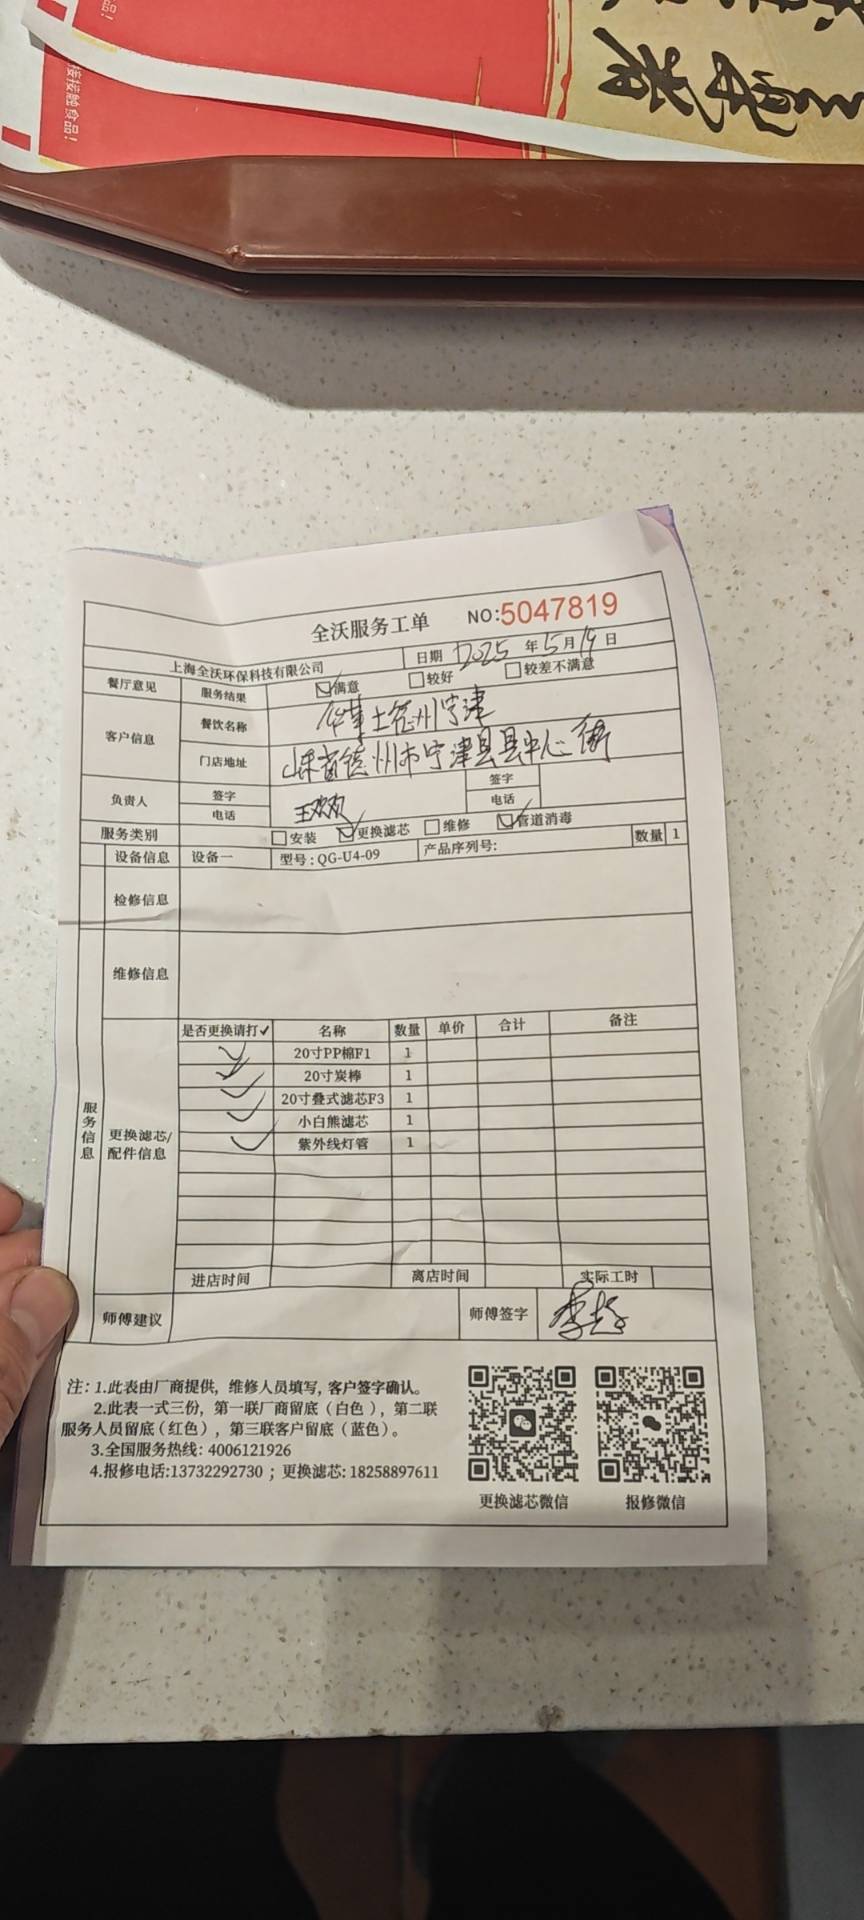 品!
接接触食品!
全沃服务工单 NO:5047819
上海全沃环保科技有限公司 日期 2025 年 5 月 19 日
餐厅意见 服务结果 满意 较好 较差不满意
客户信息 餐饮名称 华莱士德州宁津
门店地址 山东省德州市宁津县县中心街
负责人 签字 王欢欢 签字
电话 电话
服务类别 安装 更换滤芯 维修 管道消毒
设备信息 设备一 型号:QG-U4-09 产品序列号: 数量 1
检修信息
维修信息
服务信息
更换滤芯/配件信息
是否更换请打✓ 名称 数量 单价 合计 备注
✓ 20寸PP棉F1 1
✓ 20寸炭棒 1
✓ 20寸叠式滤芯F3 1
✓ 小白熊滤芯 1
✓ 紫外线灯管 1
进店时间 离店时间 实际工时
师傅建议 师傅签字
注:1.此表由厂商提供,维修人员填写,客户签字确认。
2.此表一式三份,第一联厂商留底(白色),第二联
服务人员留底(红色),第三联客户留底(蓝色)。
3.全国服务热线:4006121926
4.报修电话:13732292730;更换滤芯:18258897611
更换滤芯微信 报修微信